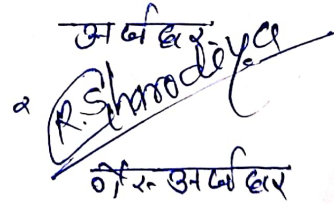 अर्जदार
R. Sharodiya
गैर अर्जदार